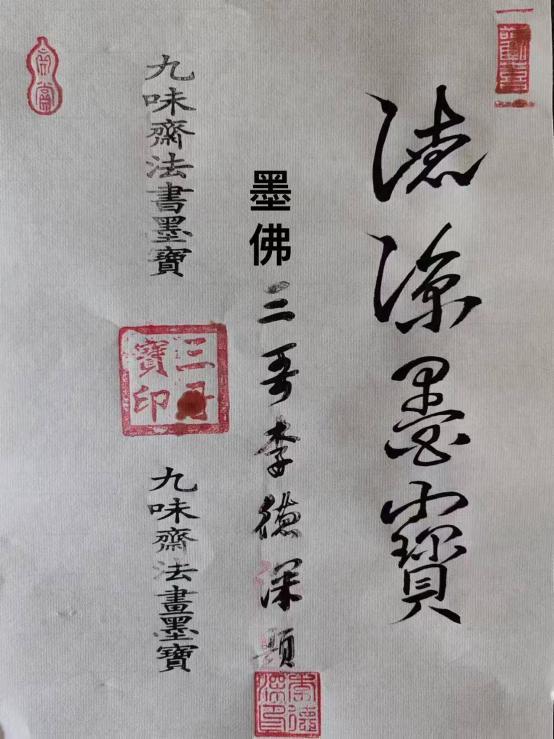 德深墨寶
墨佛三哥李德深題
李德深印
九味齋法書墨寶
九味齋法畫墨寶